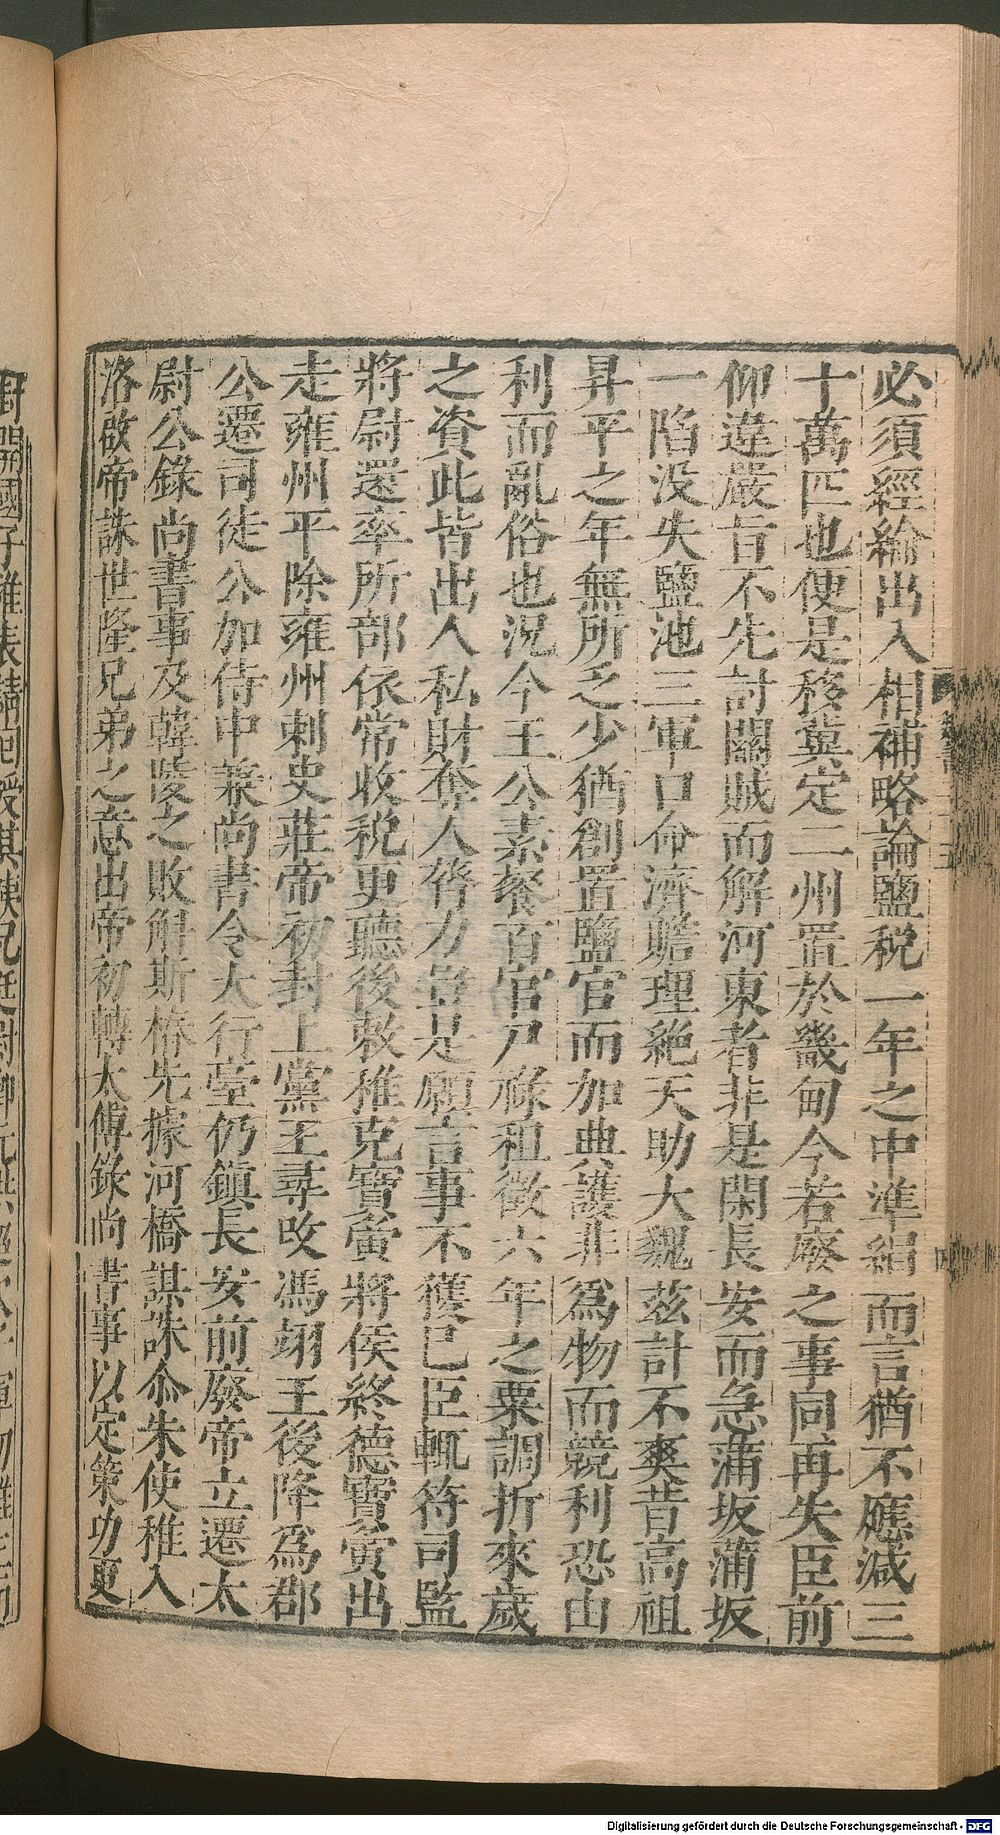 必須經綸出入相補略論鹽稅一年之中準絹而言猶不應減三
十萬匹也便是移冀定二州置於畿甸今若廢之事同再失臣前
仰違嚴旨不先討關賊而解河東者非是閑長安而急蒲坂蒲坂
一陷没失鹽池三軍口命濟贍理絶天助大魏茲計不爽昔高祖
昇平之年無所乏少猶創置鹽官而加典護非爲物而競利恐由
利而亂俗也況今王公素餐百官尸祿租徵六年之粟調折來歲
之資此皆出人私財奪人膂力豈是願言事不獲已臣輒符司監
將尉還率所部依常收稅更聽後敕稚克寶夤將侯終德寶夤出
走雍州平除雍州刺史莊帝初封上黨王尋改馮翊王後降爲郡
公遷司徒公加侍中兼尚書令大行臺仍鎮長安前廢帝立遷太
尉公錄尚書事及韓陵之敗斛斯椿先據河橋謀誅尒朱使稚入
洛啟帝誅世隆兄弟之意出帝初轉太傅錄尚書事以定策功更
Digitalisierung gefördert durch die Deutsche Forschungsgemeinschaft - DFG